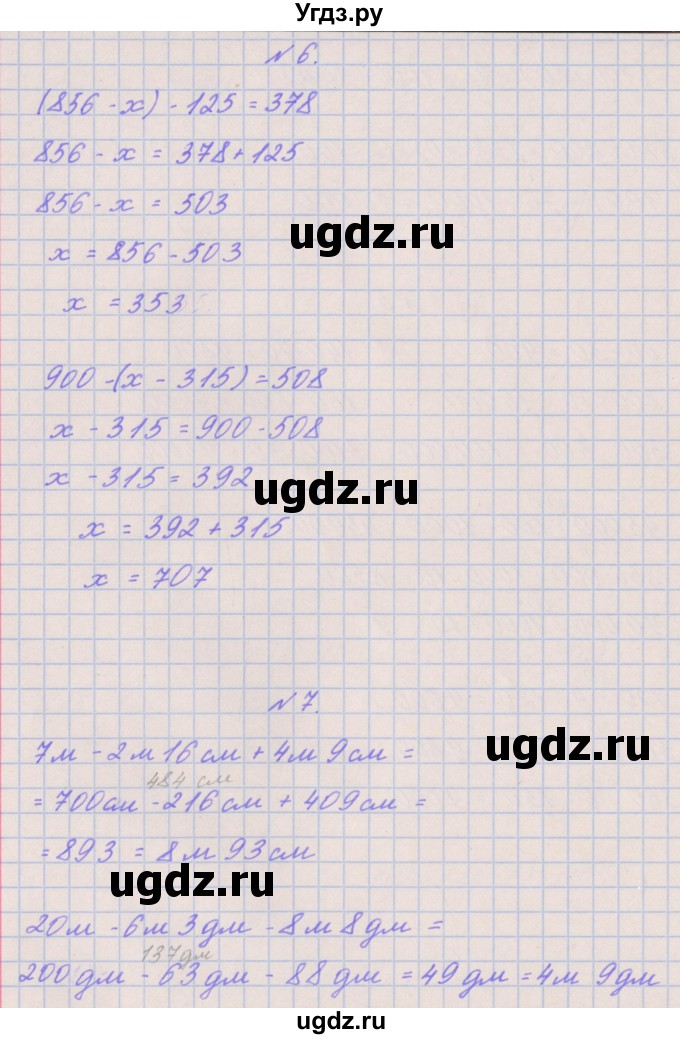 Угдз.ру
N 6.
(856 - x) - 125 = 378
856 - x = 378 + 125
856 - x = 503
ugdz.ru
x = 856 - 503
x = 353
900 - (x - 315) = 508
x - 315 = 900 - 508
x - 315 = 392
ugdz.ru
x = 392 + 315
x = 707
N 7.
7м - 2м 16см + 4м 9см =
484 см
= 700см - 216см + 409см =
= 893 = 8м 93см
ugdz.ru
20м - 6м 3дм - 8м 8дм =
137дм
200дм - 63дм - 88дм = 49дм = 4м 9дм
ugdz.ru